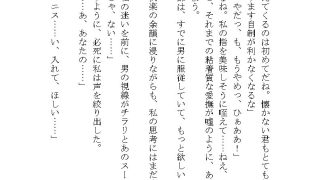 てくるのは初めてだね。懐かない君もとても
ます自制が利かなくなるな」
やだっ、も、もうやめっ、ひぁああ！
だね。私の指を美味しそうに咥えて……ねえ、
、それまでの粘着質な愛撫が嘘のように、あ
う。
は、すでに男に服従していて、もっと欲しい
楽の余韻に浸りながらも、私の思考にはまだ
ゃ、ない……」
の迷いを前に、男の視線がチラリとあのスー
ように、必死に私は声を絞り出した。
……あ、あなたの……」
ニス……い、入れて、ほしい……」